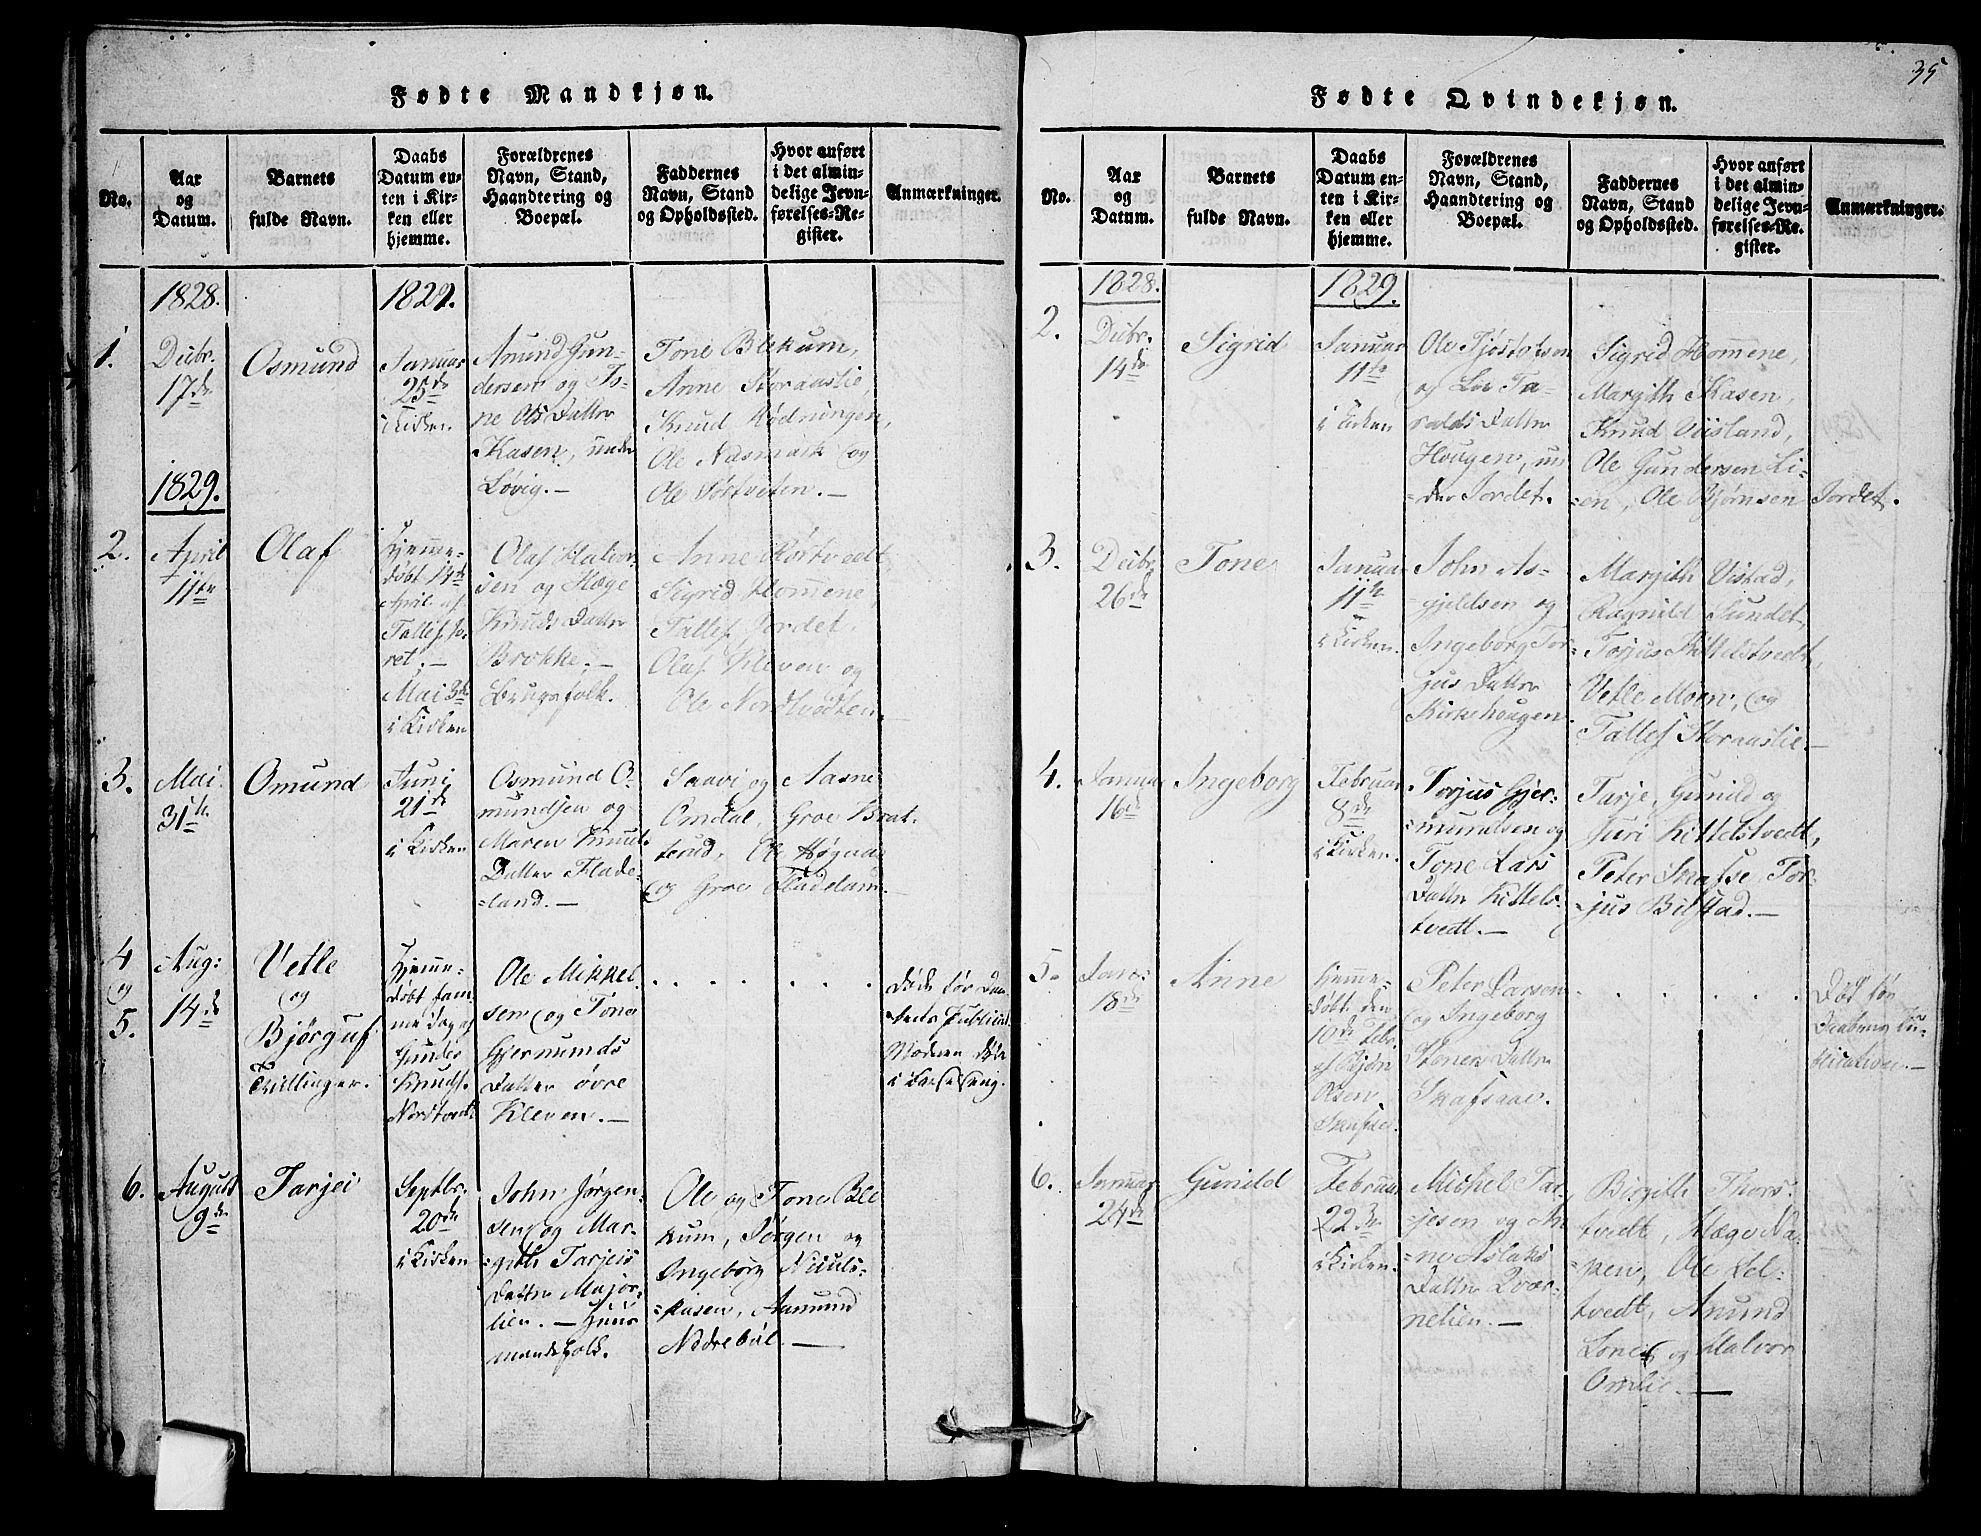 Fødte Mandkjøn.
No.
Aar
og
Datum.
Barnets
fulde Navn.
Daabs
Datum en-
ten i Kir-
ken eller
hjemme.
Forældrenes
Navn, Stand,
Haandtering og
Boepæl.
Faddernes
Navn, Stand
og Opholdssted.
Hvor anført
i det almin-
delige Jevn-
førelses-Re-
gister.
Anmærkninger.
1828.
1829.
1.
Decbr.
17de
Osmund
Januar
25de
i Kirken
Anund Gun-
dersen og To-
ne Ols Datter
Kasen, under
Løvig.—
Tone Blekum,
Anne Storaaslie,
Knud Rødningen,
Ole Næsmark og
Ole Sørtveten.—
1829.
2.
April
11te
Olaf
Hjemme-
døbt 14de
April af
Tallef Jo-
ret.—
Mai 3de
i Kirken
Olaf Halvor-
sen og Hæge
Knuds Datter
Brokke.—
Brugsfolk.
Anne Rørtvedt
Sigrid Homene,
Tallef Jordet.
Olaf Kleven og
Ole Nordtvedten.
3.
Mai
31te
Omund
Juni
21de
i Kirken
Osmund O-
mundsen og
Maren Knuds
Datter Flade-
=land.—
Saavi og Aasne
Omdal, Groe Brat-
terud, Ole Høgnas
og Groe Fladeland.
4
og
5.
Aug:
14de
Vetle
og
Bjørguf
Tvillinger.
Hjemme-
døbt sam-
me dag af
Gunder
Knuds.
Nordtvedt
Ole Mikkel-
sen og Tone
Gjermunds
Datter øvre
Kleven.—
Døde før Daa-
bens Publicat.
Moderen døde
i Barselseng.
6.
August
9de
Tarjei
Septbr.
20de
i Kirken
John Jørgen-
sen og Mar-
=gith Tarjeis
Datter Major-
lien.—Huus
mandsfolk.
Ole og Tone Ble
kum, Jørgen og
Ingeborg Niuls-
=kasen, Aamund
Nedrebøe.—
35
Fødte Qvindekjøn.
No.
Aar
og
Datum.
Barnets
fulde Navn.
Daabs
Datum en-
ten i Kir-
ken eller
hjemme.
Forældrenes
Navn, Stand,
Haandtering og
Boepæl.
Faddernes
Navn, Stand
og Opholdssted.
Hvor anført
i det almin-
delige Jevn-
førelses-Re-
gister.
Anmærkninger.
1828.
1829.
2.
Decbr.
14de
Sigrid
Januar
11te
i Kirken
Ole Tjøstolsen
og Liv Ta-
ralds Datter
Hougen, un
=der Jordet.
Sigrid Homene,
Margith Kasen,
Knud Viisland,
Ole Gundersen Li-
=en, Ole Bjørnsen Jordet.
3.
Decbr.
26de
Tone
Januar
11te
i Kirken.
John As-
=gjeldsen og
Ingeborg Tor-
jus Datter
Kirkehougen
Margith Vistad,
Ragnild Sundet,
Torjus Kittelstvedt,
Vetle Moen, og
Tallef Storaaslie.—
4.
Januar
16de
Ingeborg
Februar
8de
i Kirken.
Torjus Gjer-
=mundsen og
Tone Lars
Datter Kittels-
tvedt.—
Tarje, Gunild og
Juri Kittelstvedt,
Peter Skafse, Tor-
=jus Bilstad.—
5.
Jan:
18de
Anne
Hjemme-
døbt den
10de Febr.
af Bjørn
Olsen
Skafsaae.
Peter Larsen
og Ingeborg
Datter
Skafsaae.
Død før
Daabens Pu-
blication.—
6.
Januar
24de
Gunild
Februar
22de
i Kirken.
Michel Tar-
=jesen og An-
=ne Aslaks
Datter Qvær-
nelien.—
Birgith Thors-
tvedt, Hæge Na-
=pen, Ole Lel-
tvedt, Anund
Lonei og Halvor
Omlie.—